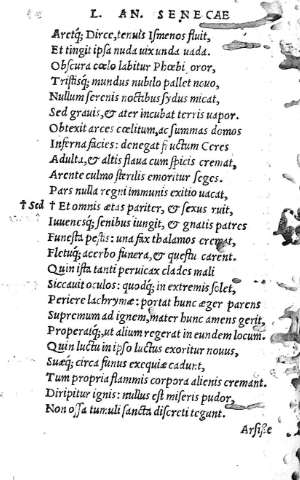 L. AN. SENECAE
Aretq; Dirce, tenuis Ismenos fluit,
Et tingit ipsa nuda uix unda uada.
Obscura cœlo labitur Phœbi soror,
Tristisq; mundus nubilo pallet nouo,
Nullum serenis noctibus sydus micat,
Sed grauis, & ater incubat terris uapor.
Obtexit arces cœlitum, ac summas domos
Inferna facies: denegat fructum Ceres
Adulta, & altis flaua cum spicis cremat,
Arente culmo sterilis emoritur seges.
Pars nulla regni immunis exitio uacat,
† Sed † Et omnis ætas pariter, & sexus ruit,
Iuuenesq; senibus iungit, & gnatis patres
Funesta pestis: una fax thalamos cremat,
Fletuq; acerbo funera, & questu carent.
Quin ista tanti peruicax clades mali
Siccauit oculos: quodq; in extremis solet,
Periere lachrymæ: portat hunc æger parens
Supremum ad ignem, mater hunc amens gerit,
Properatq;, ut alium regerat in eundem locum.
Quin luctu in ipso luctus exoritur nouus,
Suæq; circa funus exequiæ cadunt,
Tum propria flammis corpora alienis cremant.
Diripitur ignis: nullus est miseris pudor,
Non ossa tumuli sancta discreti tegunt.
Arsisse